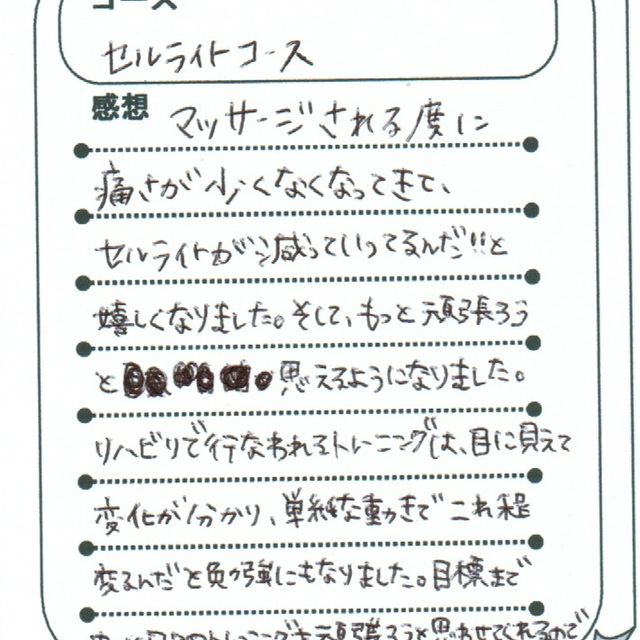 コース
セルライトコース
感想 マッサージされる度に
痛さが少くなくなってきて、
セルライトが減っていってるんだ!!と
嬉しくなりました。そして、もっと頑張ろう
と 思えるようになりました。
リハビリで行なわれるトレーニングは、目に見えて
変化が分かり、単純な動きでこれ程
変るんだと勉強にもなりました。目標まで
トレーニングも頑張ろうと思わせてくれるので